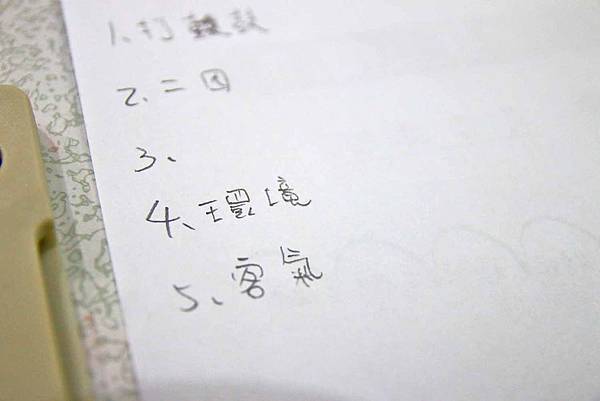 1、打鼓
2、二因
3、
4、環境
5、客氣